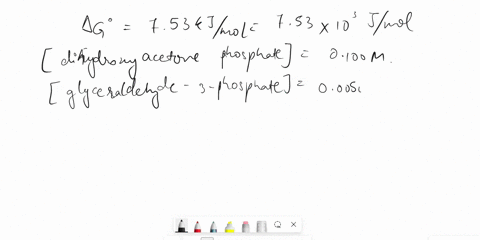 ΔG° = 7.53 kJ/mol = 7.53 × 10³ J/mol
[dihydroxyacetone phosphate] = 0.100M.
[glyceraldehyde - 3 - phosphate] = 0.005